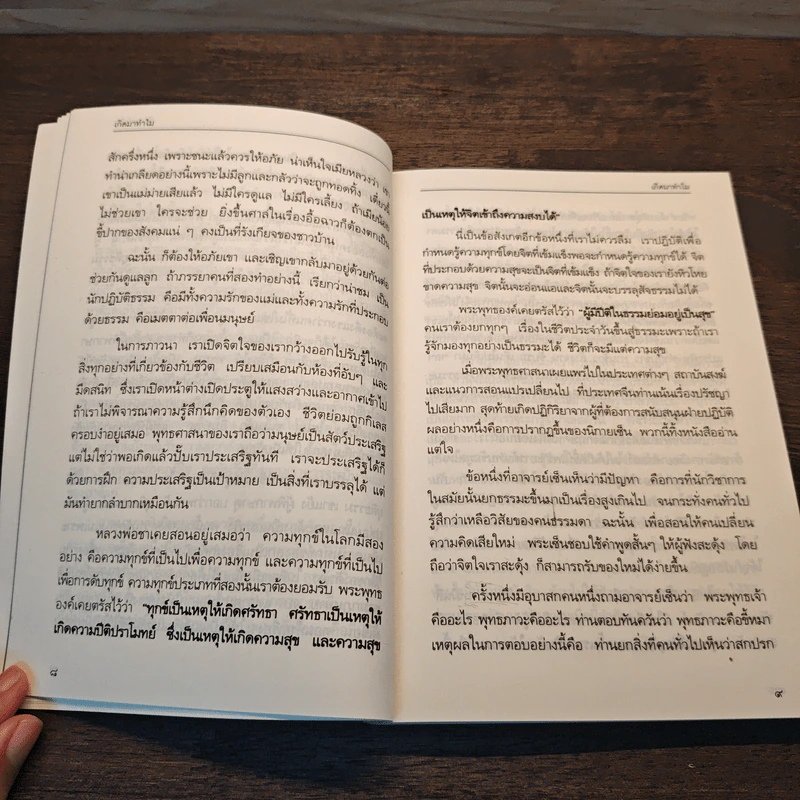 เกิดมาทำไม
สักครึ่งหนึ่ง เพราะชนะแล้วควรให้อภัย น่าเห็นใจเมียหลวงว่า เขา
ทำน่าเกลียดอย่างนี้เพราะไม่มีลูกและกลัวว่าจะถูกทอดทิ้ง
เขาเป็นแม่ม่ายเสียแล้ว ไม่มีใครดูแล ไม่มีใครเลี้ยง ถ้าเมียน้อย
ไม่ช่วยเขา ใครจะช่วย ยิ่งขึ้นศาลในเรื่องอื้อฉาวก็ต้องตกเป็น
ขี้ปากของสังคมแน่ ๆ คงเป็นที่รังเกียจของชาวบ้าน
ฉะนั้น ก็ต้องให้อภัยเขา และเชิญเขากลับมาอยู่ด้วยกันต่อ
ช่วยกันดูแลลูก ถ้าภรรยาคนที่สองทำอย่างนี้ เรียกว่าน่าชม เป็น
นักปฏิบัติธรรม คือมีทั้งความรักของแม่และทั้งความรักที่ประกอบ
ด้วยธรรม คือเมตตาต่อเพื่อนมนุษย์
ในการภาวนา เราเปิดจิตใจของเรากว้างออกไปรับรู้ในทุก
สิ่งทุกอย่างที่เกี่ยวข้องกับชีวิต เปรียบเสมือนกับห้องที่อับๆ และ
มืดสนิท ซึ่งเราเปิดหน้าต่างเปิดประตูให้แสงสว่างและอากาศเข้าไป
ถ้าเราไม่พิจารณาความรู้สึกนึกคิดของตัวเอง ชีวิตย่อมถูกกิเลส
ครอบงำอยู่เสมอ พุทธศาสนาของเราถือว่ามนุษย์เป็นสัตว์ประเสริฐ
แต่ไม่ใช่ว่าพอเกิดแล้วปั๊บเราประเสริฐทันที เราจะประเสริฐได้ก็
ด้วยการฝึก ความประเสริฐเป็นเป้าหมาย เป็นสิ่งที่เราบรรลุได้ แต่
มันทำยากลำบากเหมือนกัน
หลวงพ่อชาเคยสอนอยู่เสมอว่า ความทุกข์ในโลกมีสอง
อย่าง คือความทุกข์ที่เป็นไปเพื่อความทุกข์ และความทุกข์ที่เป็นไป
เพื่อการดับทุกข์ ความทุกข์ประเภทที่สองนั้นเราต้องยอมรับ พระพุทธ
องค์เคยตรัสไว้ว่า "ทุกข์เป็นเหตุให้เกิดศรัทธา ศรัทธาเป็นเหตุให้
เกิดความปีติปราโมทย์ ซึ่งเป็นเหตุให้เกิดความสุข และความสุข
๘
เกิดมาทำไม
เป็นเหตุให้จิตเข้าถึงความสงบได้"
นี่เป็นข้อสังเกตอีกข้อหนึ่งที่เราไม่ควรลืม เราปฏิบัติเพื่อ
กำหนดรู้ความทุกข์โดยจิตที่เข้มแข็งพอจะกำหนดรู้ความทุกข์ได้ จิต
ที่ประกอบด้วยความสุขจะเป็นจิตที่เข้มแข็ง ถ้าจิตใจของเรายังหิวโหย
ขาดความสุข จิตนั้นจะอ่อนแอและจิตนั้นจะบรรลุสัจธรรมไม่ได้
พระพุทธองค์เคยตรัสไว้ว่า "ผู้มีปีติในธรรมย่อมอยู่เป็นสุข"
คนเราต้องยกทุกๆ เรื่องในชีวิตประจำวันขึ้นสู่ธรรมะเพราะถ้าเรา
รู้จักมองทุกอย่างเป็นธรรมะได้ ชีวิตก็จะมีแต่ความสุข
เมื่อพระพุทธศาสนาเผยแพร่ไปในประเทศต่างๆ สถาบันสงฆ์
และแนวการสอนแปรเปลี่ยนไป ที่ประเทศจีนท่านเน้นเรื่องปรัชญา
ไปเสียมาก สุดท้ายเกิดปฏิกิริยาจากผู้ที่ต้องการสนับสนุนฝ่ายปฏิบัติ
ผลอย่างหนึ่งคือการปรากฏขึ้นของนิกายเซ็น พวกนี้ทิ้งหนังสืออ่าน
แต่ใจ
ข้อหนึ่งที่อาจารย์เซ็นเห็นว่ามีปัญหา คือการที่นักวิชาการ
ในสมัยนั้นยกธรรมะขึ้นมาเป็นเรื่องสูงเกินไป จนกระทั่งคนทั่วไป
รู้สึกว่าเหลือวิสัยของคนธรรมดา ฉะนั้น เพื่อสอนให้คนเปลี่ยน
ความคิดเสียใหม่ พระเซ็นชอบใช้คำพูดสั้นๆ ให้ผู้ฟังสะดุ้ง โดย
ถือว่าจิตใจเราสะดุ้ง ก็สามารถรับของใหม่ได้ง่ายขึ้น
ครั้งหนึ่งมีอุบาสกคนหนึ่งถามอาจารย์เซ็นว่า พระพุทธเจ้า
คืออะไร พุทธภาวะคืออะไร ท่านตอบทันควันว่า พุทธภาวะคือขี้หมา
เหตุผลในการตอบอย่างนี้คือ ท่านยกสิ่งที่คนทั่วไปเห็นว่าสกปรก
๙